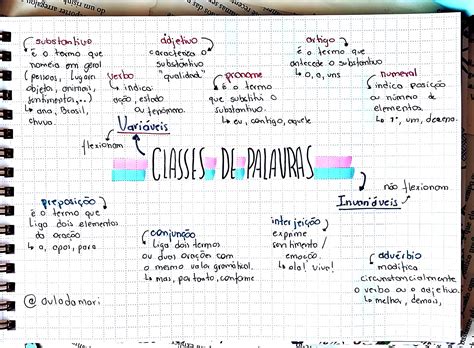 substantivo
é o termo que
nomeia em geral
(pessoas, lugares
objeto, animais,
sentimentos,...)
↳ ana, Brasil,
chuva.
verbo
↳ indica:
ação, estado
ou fenômeno.
adjetivo
caracteriza o
substantivo
"qualidade"
pronome
é o termo
que substitui o
substantivo.
↳ eu, contigo, aquele
artigo
é o termo que
antecede o substantivo
↳ o, a, uns
numeral
indica posição
ou número de
elementos.
↳ 1º, um, dezena.
Variáveis
flexionam
CLASSES DE PALAVRAS
não flexionam
Invariáveis
preposição
é o termo que
liga dois elementos
da oração
↳ a, após, para
conjunção
liga dois termos
ou duas orações com
o mesmo valor gramatical.
↳ mas, portanto, conforme
interjeição
exprime
sentimento/
emoção.
↳ olá! vive!
advérbio
modifica
circunstancialmente
o verbo ou o adjetivo.
↳ melhor, demais,
@auladamari